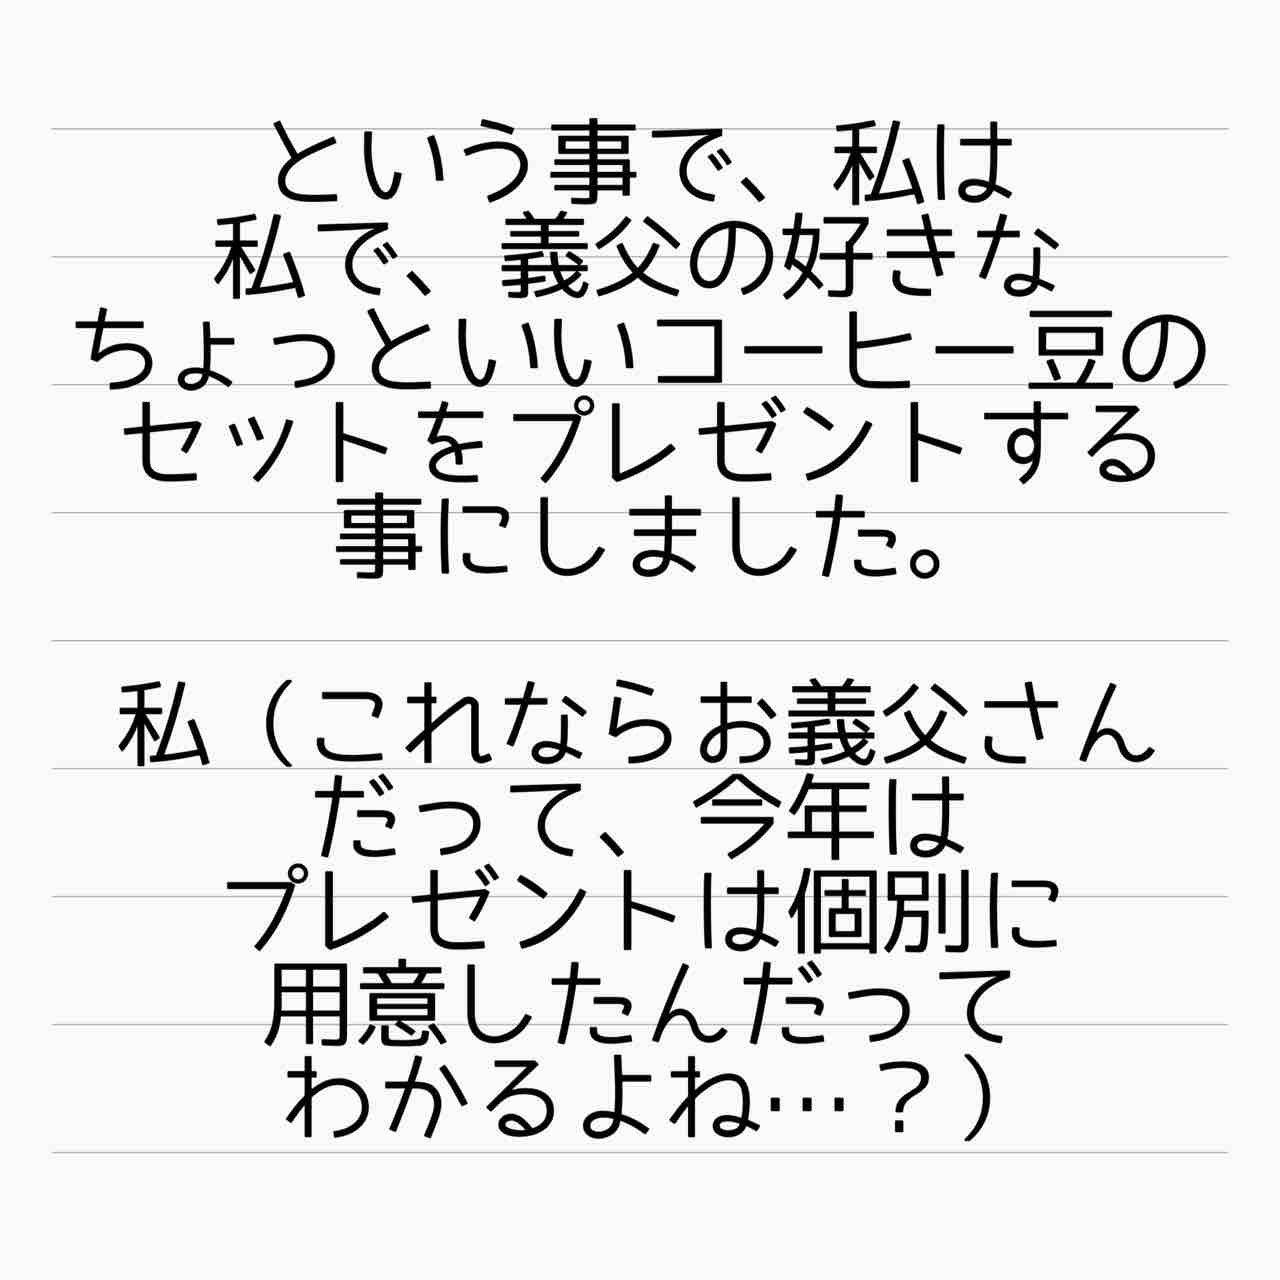 という事で、私は
私で、義父の好きな
ちょっといいコーヒー豆の
セットをプレゼントする
事にしました。
私（これならお義父さん
だって、今年は
プレゼントは個別に
用意したんだって
わかるよね…？）